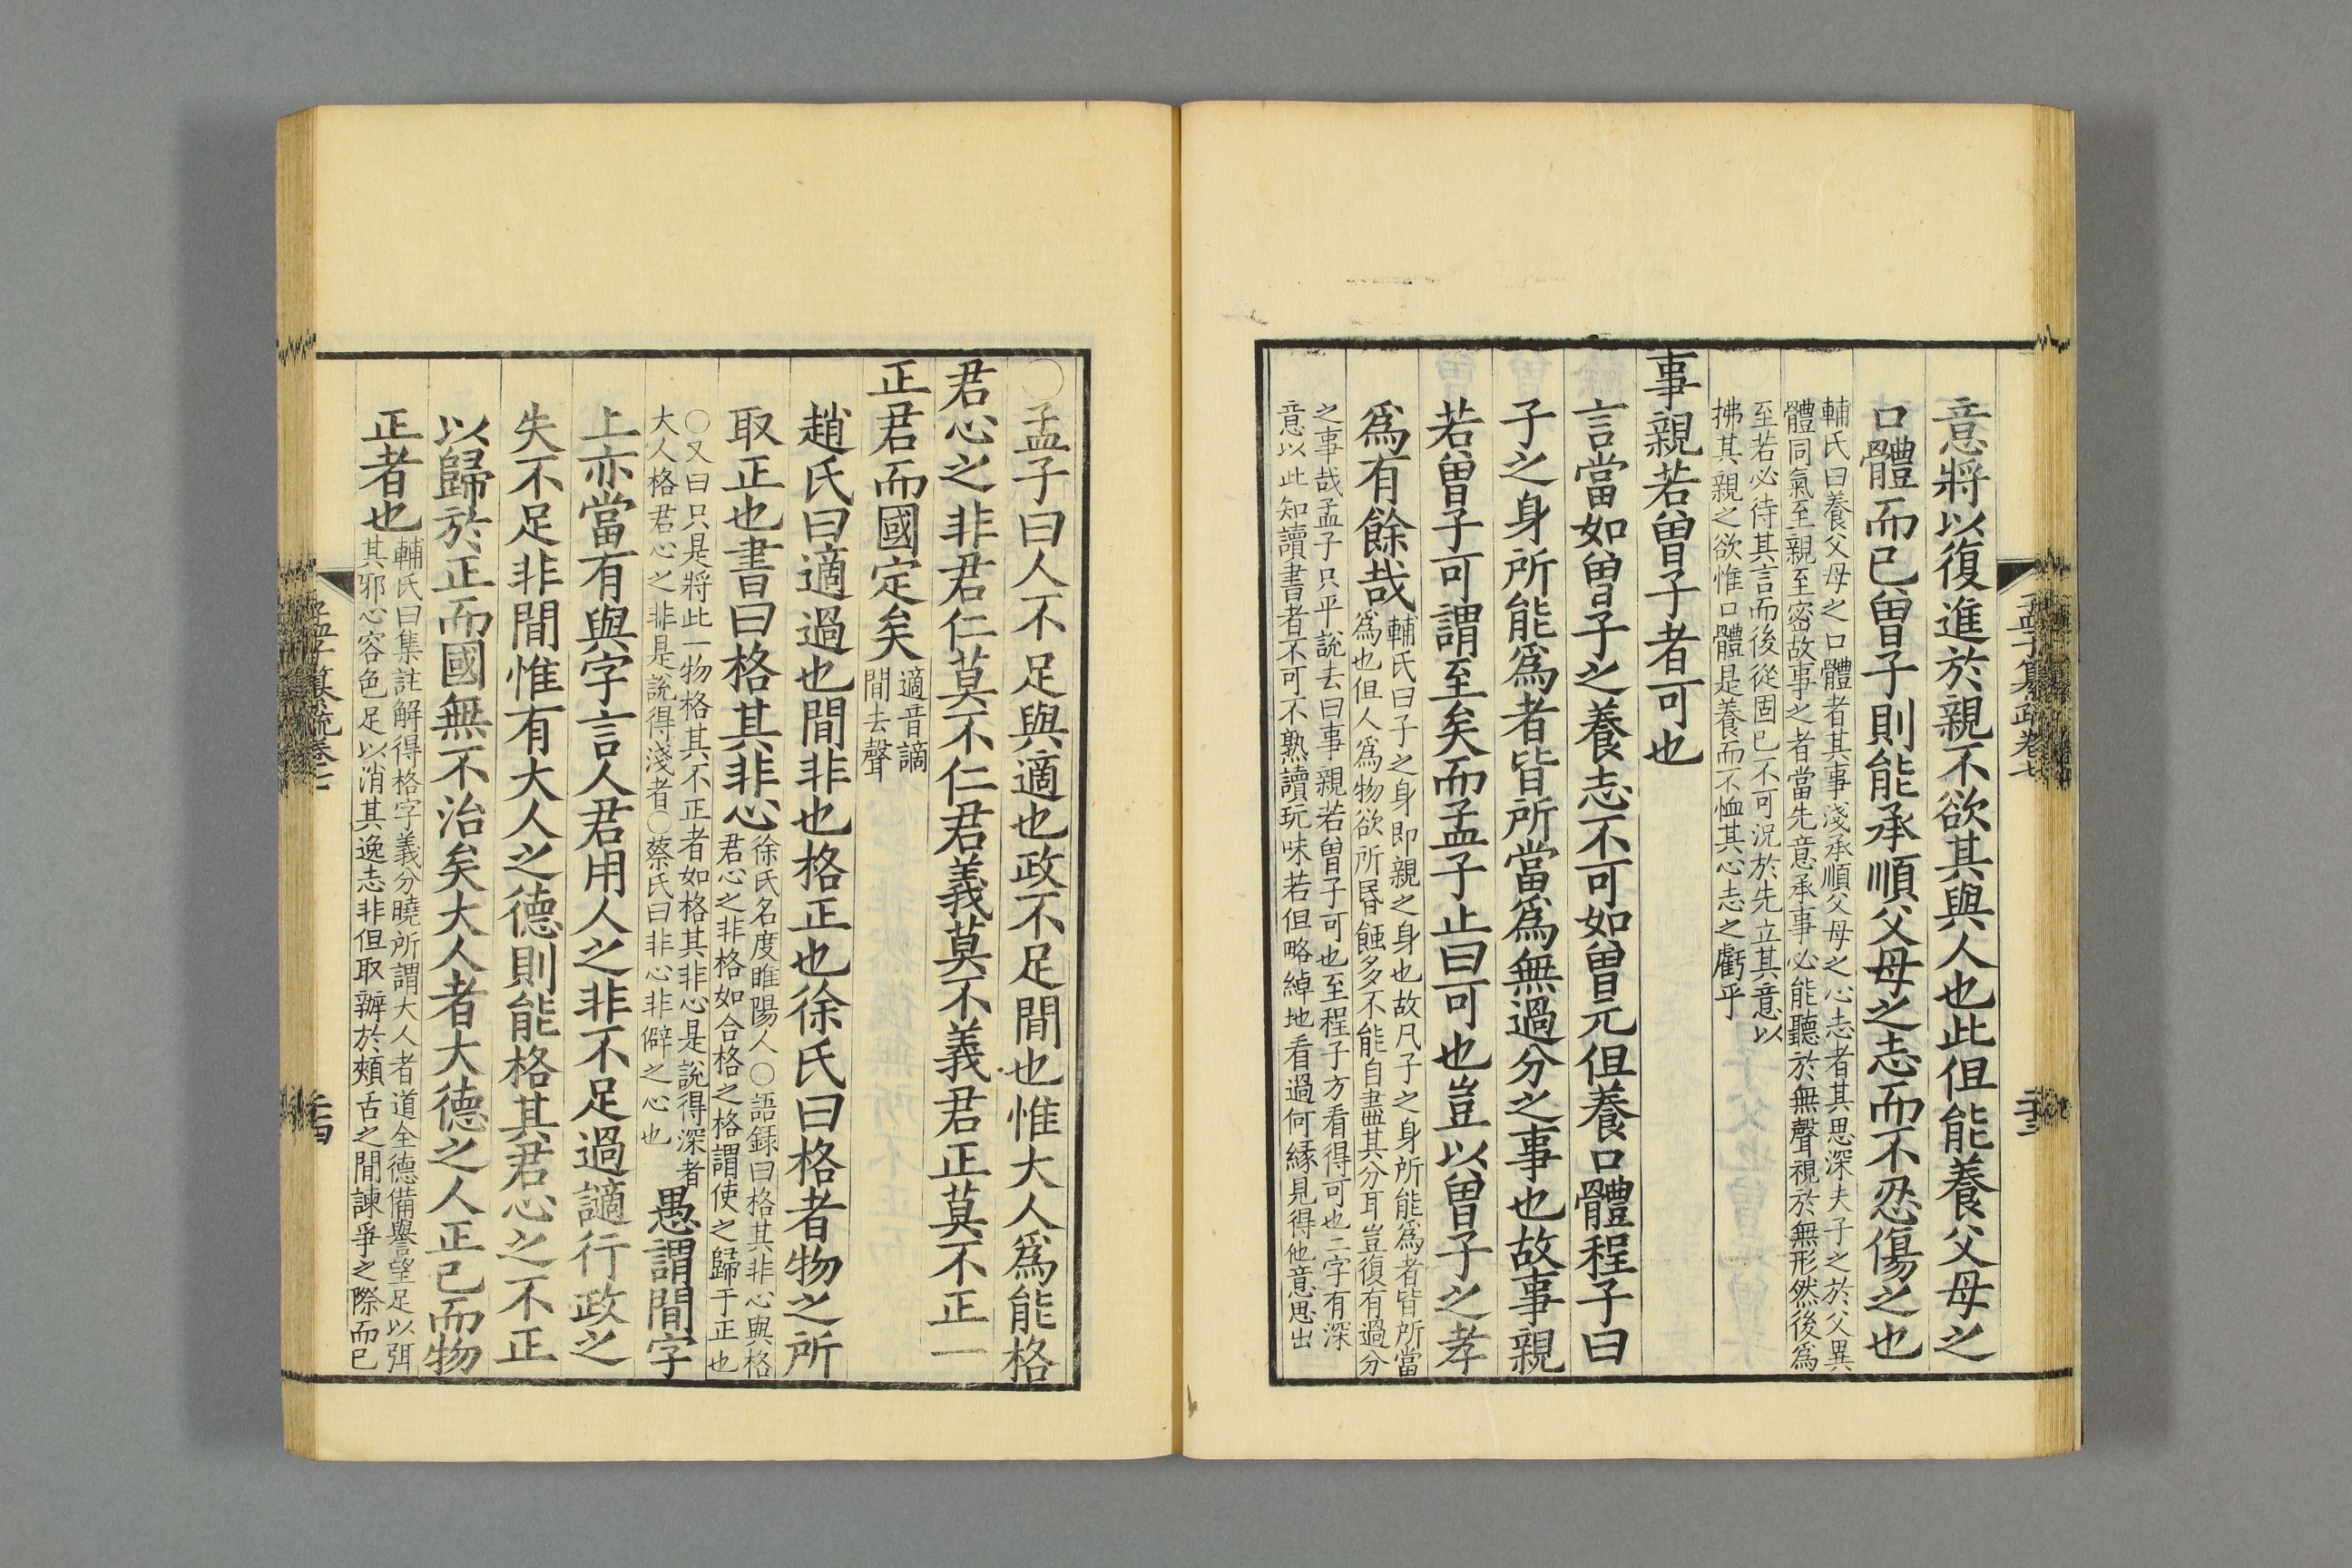 孟子纂疏卷七
二十三
意將以復進於親不欲其與人也此但能養父母之
口體而已曾子則能承順父母之志而不忍傷之也
輔氏曰養父母之口體者其事淺承順父母之心志者其思深夫子之於父異
體同氣至親至密故事之者當先意承事必能聽於無聲視於無形然後為
至若必待其言而後從固已不可況於先立其意以
拂其親之欲惟口體是養而不恤其心志之虧乎
事親若曾子者可也
言當如曾子之養志不可如曾元但養口體程子曰
子之身所能為者皆所當為無過分之事也故事親
若曾子可謂至矣而孟子止曰可也豈以曾子之孝
為有餘哉
輔氏曰子之身即親之身也故凡子之身所能為者皆所當
為也但人為物欲所昏蝕多不能自盡其分耳豈復有過分
之事哉孟子只平說去曰事親若曾子可也至程子方看得可也二字有深
意以此知讀書者不可不熟讀玩味若但略綽地看過何緣見得他意思出
○孟子曰人不足與適也政不足間也惟大人為能格
君心之非君仁莫不仁君義莫不義君正莫不正一
正君而國定矣
適音謫
間去聲
趙氏曰適過也間非也格正也徐氏曰格者物之所
取正也書曰格其非心
徐氏名度睢陽人○語録曰格其非心與格
君心之非格如合格之格謂使之歸于正也
○又曰只是將此一物格其不正者如格其非心是說得深者
大人格君心之非是說得淺者○蔡氏曰非心非僻之心也
愚謂間字
上亦當有與字言人君用人之非不足過謫行政之
失不足非間惟有大人之德則能格其君心之不正
以歸於正而國無不治矣大人者大德之人正己而物
正者也
輔氏曰集註解得格字義分曉所謂大人者道全德備譽望足以弭
其邪心容色足以消其逸志非但取辦於頰舌之間諫爭之際而已
孟子纂疏卷七
二十四